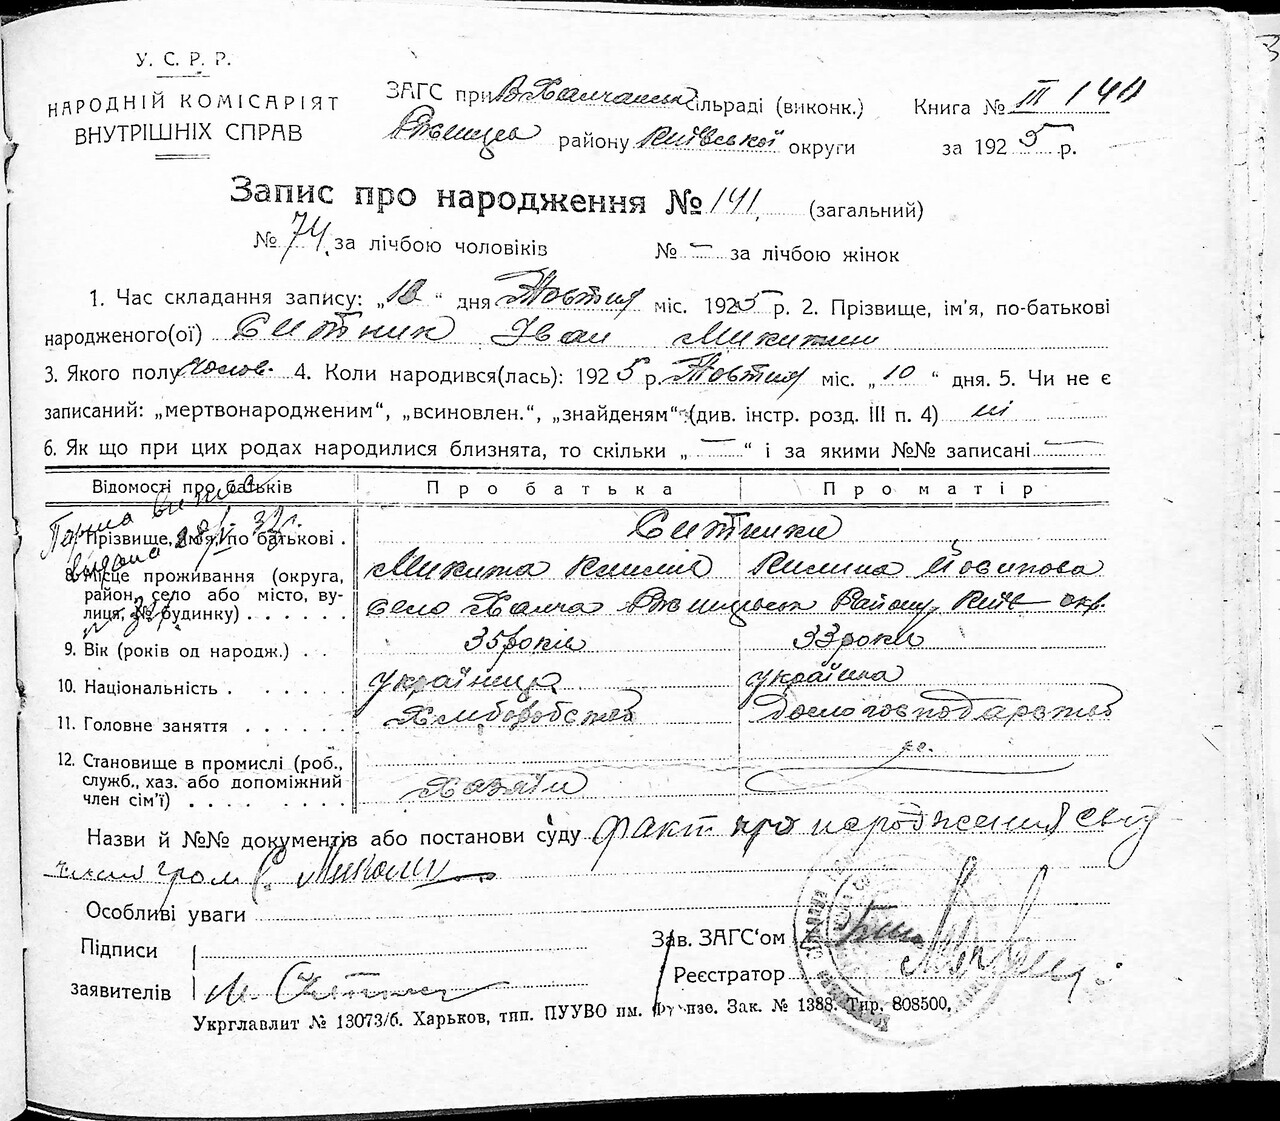 У. С. Р. Р.
НАРОДНІЙ КОМІСАРІЯТ
ВНУТРІШНІХ СПРАВ
ЗАГС при В Халчанськ сільраді (виконк.)
Ржищев району Київської округи
Книга № III 140
за 1925 р.
Запис про народження № 141 (загальний)
№ 74 за лічбою чоловіків № — за лічбою жінок
1. Час складання запису: „12“ дня Жовтня міс. 1925 р. 2. Прізвище, ім'я, по-батькові
народженого(ої) Ситник Іван Микитин
3. Якого полу чолов. 4. Коли народився(лась): 1925 р. Жовтня міс. „10“ дня. 5. Чи не є
записаний: „мертвонародженим“, „всиновлен.“, „знайденям“ (див. інстр. розд. III п. 4) ні
6. Як що при цих родах народилися близнята, то скільки „—“ і за якими №№ записані —
Відомості про батьків Про батька Про матір
видана
Прізвище, ім'я, по батькові . Ситники
Микита Климів Килина Йосипова
8. Місце проживання (округа,
район, село або місто, ву-
лиця, № будинку) . . . . . . село Халча Ржищівськ Району Київ окр.
9. Вік (років од народж.) . . 35 років 33 роки
10. Національність . . . . . . українець українка
11. Головне заняття . . . . . . Хліборобство домогосподарство
12. Становище в промислі (роб.,
служб., хаз. або допоміжний
член сім'ї) . . . . . . . . Хазяїн
Назви й №№ документів або постанови суду факт про народження
гром С. Микити
Особливі уваги
Підписи
заявителів М Ситник
Зав. ЗАГС'ом
Реєстратор
Укрглавлит № 13073/б. Харьков, тпп. ПУУВО пм. Фрунзе. Зак. № 1388. Тир. 808500,